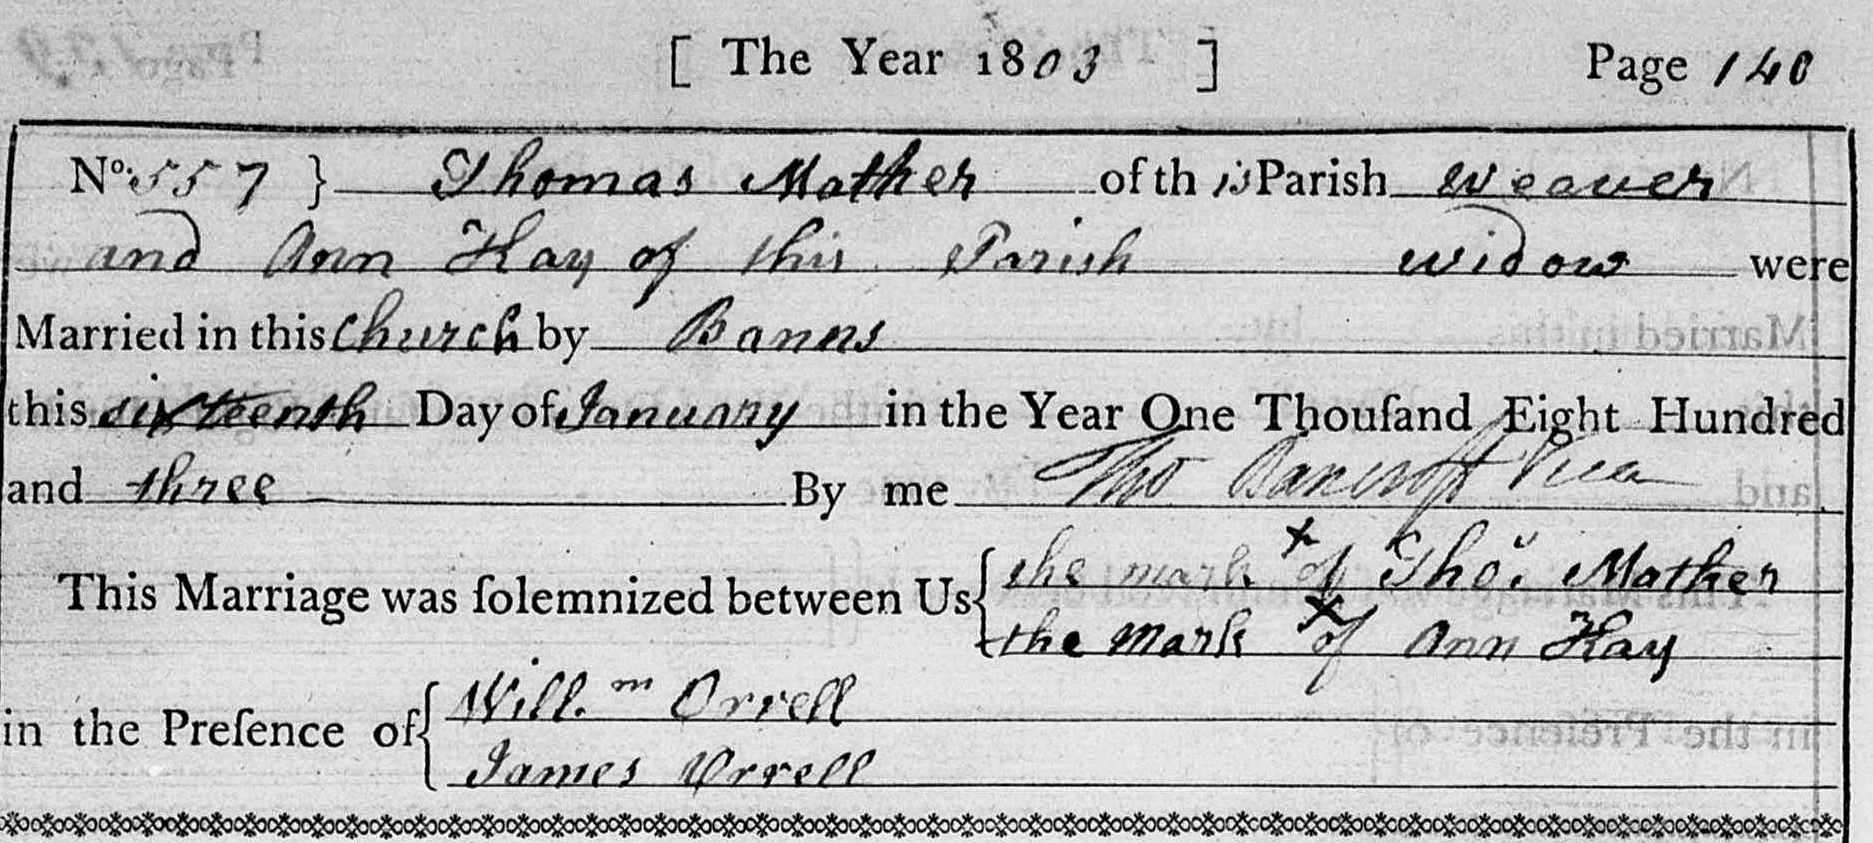 [ The Year 1803 ] Page 140
No. 557 } Thomas Mather of this Parish Weaver
and Ann Hay of this Parish Widow were
Married in this Church by Banns
this sixteenth Day of January in the Year One Thouſand Eight Hundred
and three By me Tho Bancroft
This Marriage was ſolemnized between Us { the mark X of Thos. Mather
the mark X of Ann Hay
in the Preſence of { Will.m Orrell
James Orrell